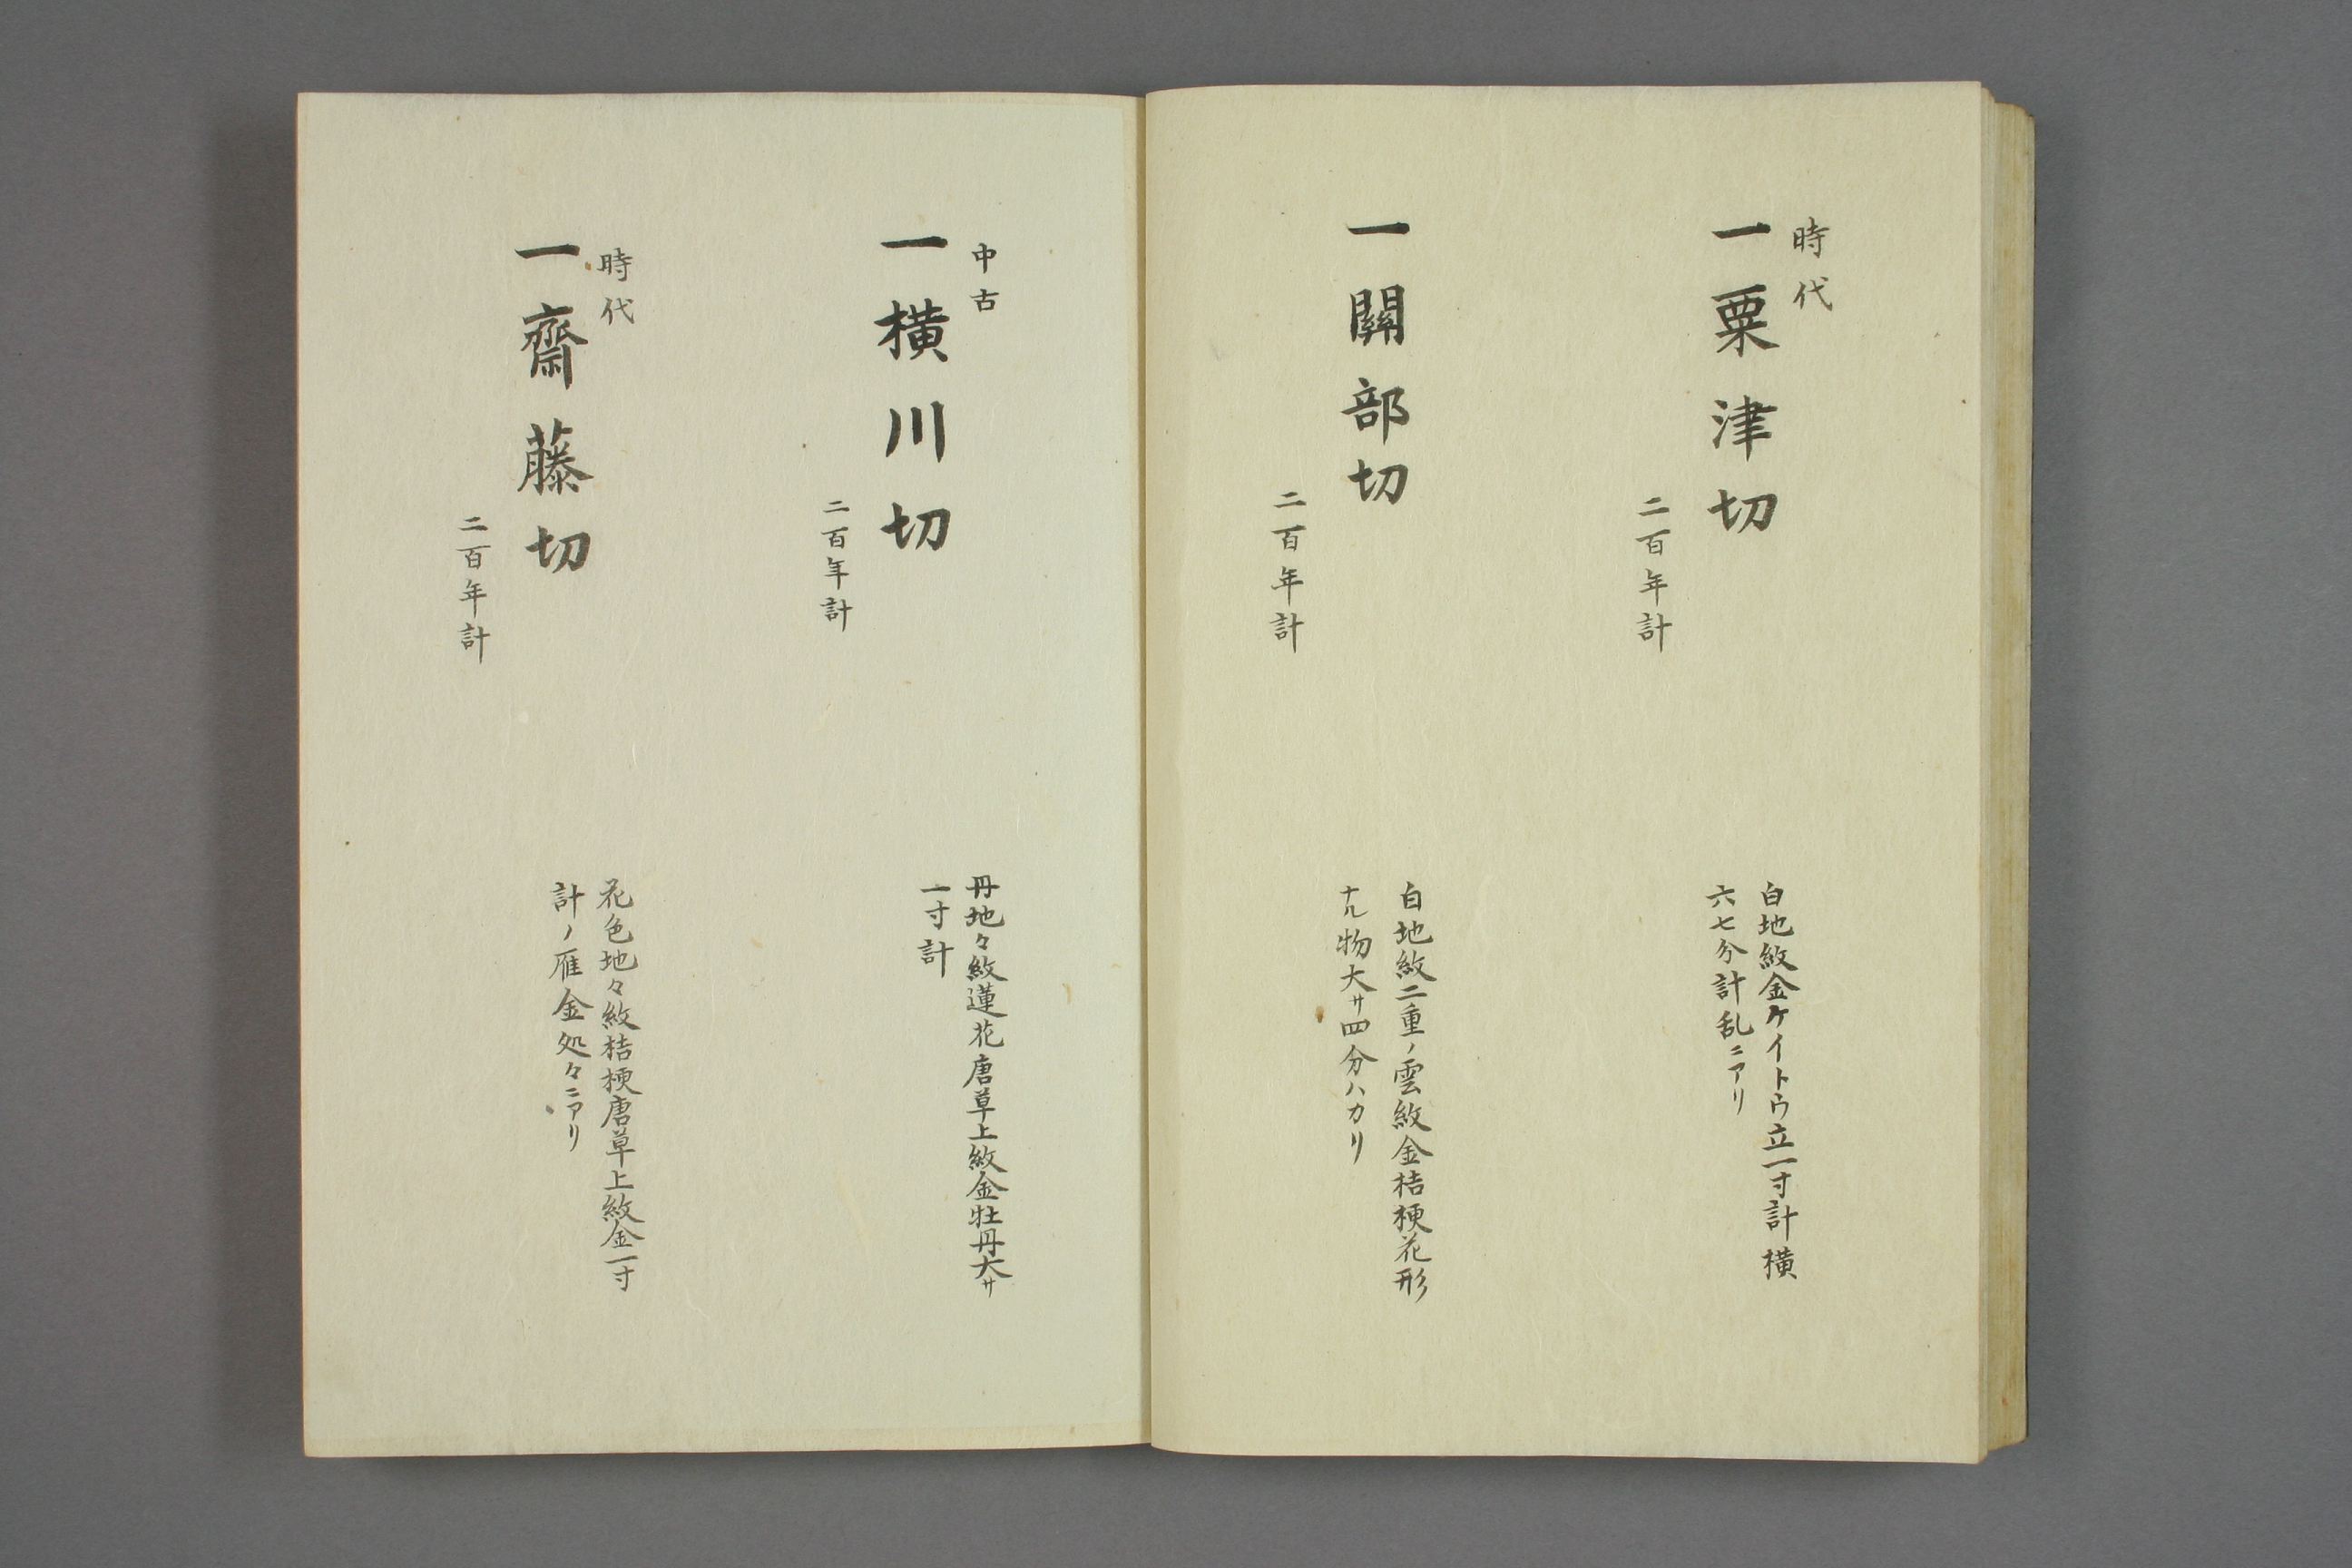 時代
一粟津切
二百年計
白地紋金ケイトウ立一寸計横
六七分計乱ニアリ
一關部切
二百年計
白地紋二重ノ雲紋金桔梗花形
ナル物大サ四分ハカリ
中古
一橫川切
二百年計
丹地々紋蓮花唐草上紋金牡丹大サ
一寸計
時代
一齋藤切
二百年計
花色地々紋桔梗唐草上紋金一寸
計ノ雁金処々ニアリ